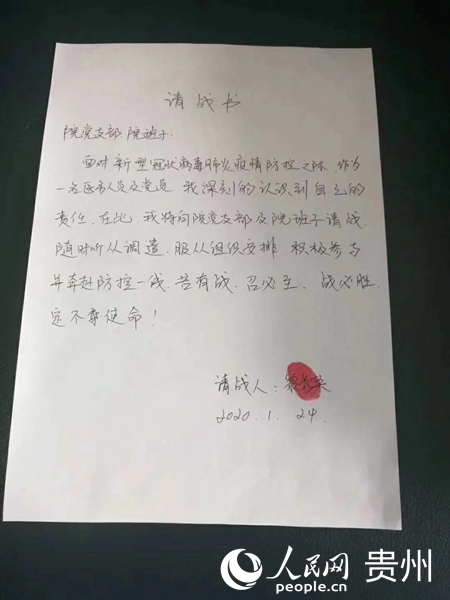 请战书
院党支部、院班子:
面对新型冠状病毒肺炎疫情防控之际,作为
一名医务人员及党员,我深刻的认识到自己的
责任,在此,我将向院党支部及院班子请战,
随时听从调遣,服从组织安排,积极参与
并奔赴防控一线,若有战,召必至,战必胜,
定不辱使命!
请战人:
2020.1.24.
人民网 贵州
people.cn